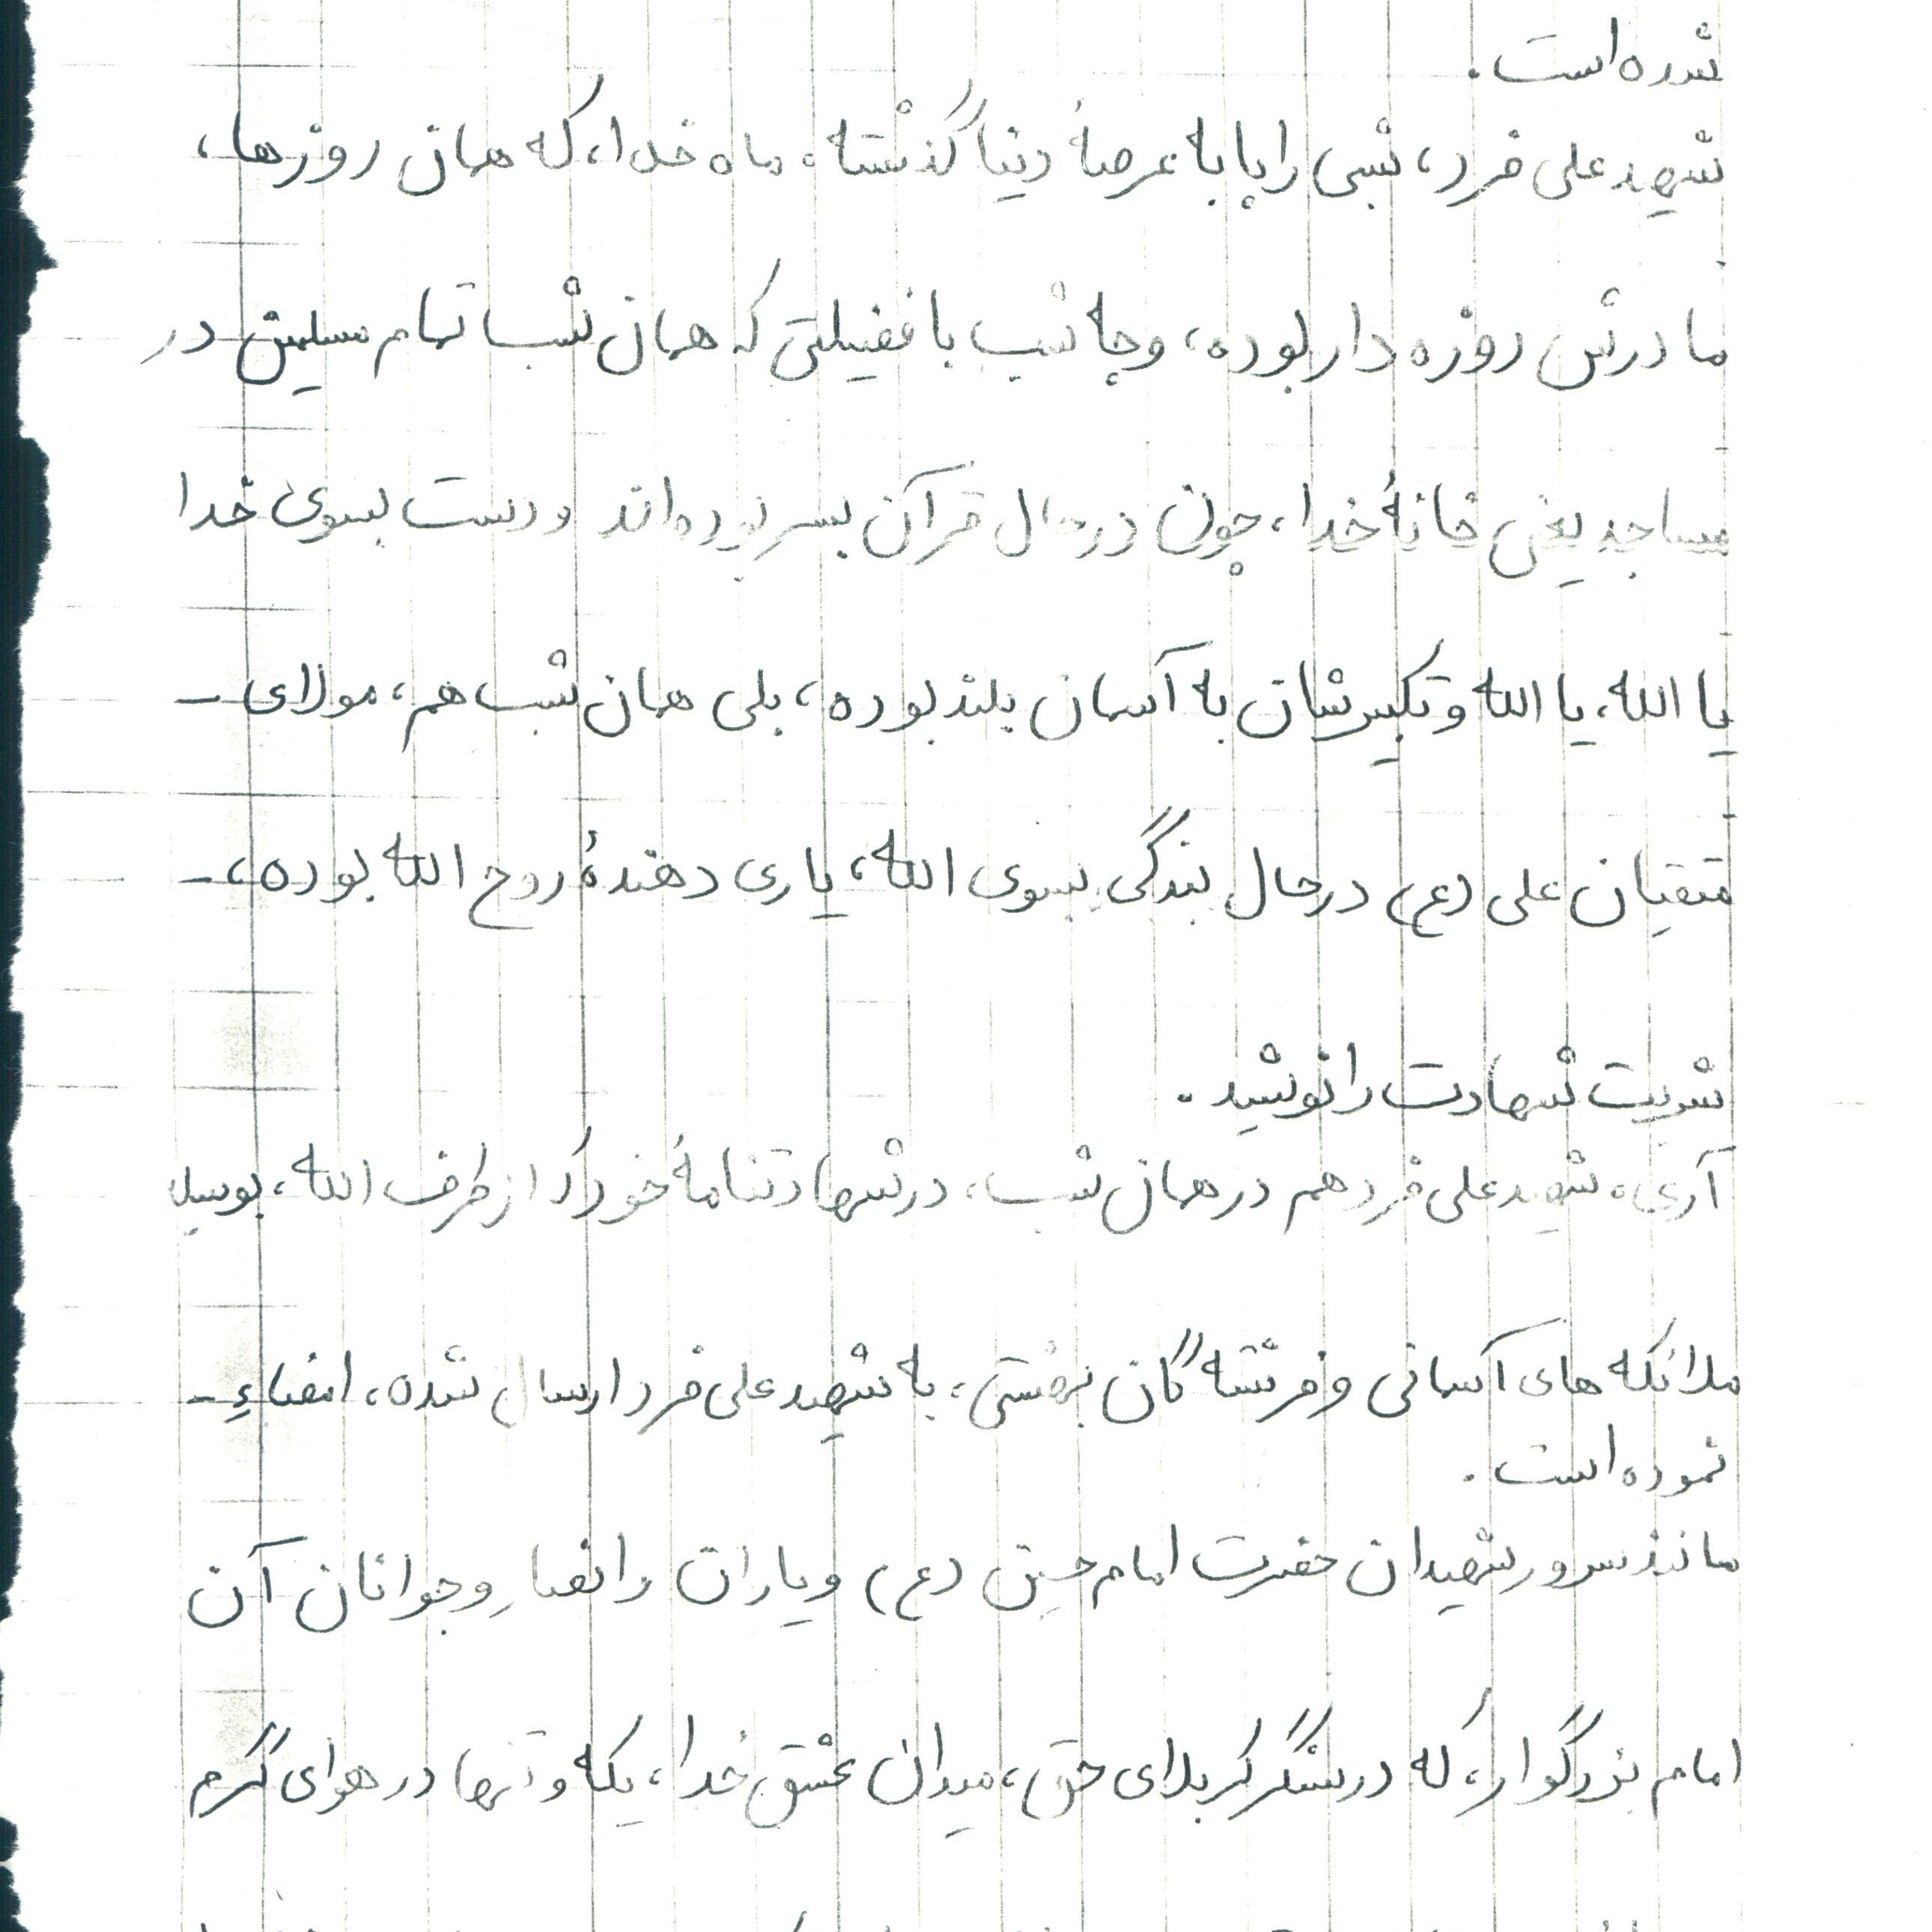 شده است.
شهید علی فرد، شبی را پا به عرصهٔ دنیا گذشته، ماه خدا، که همان روزها،
مادرش روزه دار بوده، و چه شب با فضیلتی که همان شب تمام مسلمین در
مساجد یعنی خانهٔ خدا، چون در حال قرآن بسر بوده‌اند و دست بسوی خدا
یا الله، یا الله و تکبیرشان به آسمان بلند بوده، بلی همان شب هم، مولای -
متقیان علی (ع) در حال بندگی بسوی الله، یاری دهندهٔ روح الله بوده، -
شربت شهادت را نوشید.
آری، شهید علی فرد هم در همان شب، در شهادتنامهٔ خود که از طرف الله، بوسیله
ملائکه های آسمانی و فرشته گان بهشتی، به شهید علی فرد ارسال شده، امضاءِ -
نموده است.
مانند سرور شهیدان حضرت امام حسین (ع) و یاران و انصار و جوانان آن
امام بزرگوار، که در سنگر کربلای حق، میدان عشق خدا، یکه و تنها در هوای گرم